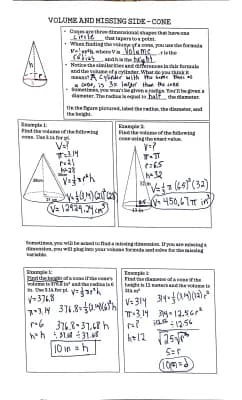 VOLUME AND MISSING SIDE - CONE
• Cones are three dimensional shapes that have one
circle that tapers to a point.
• When finding the volume of a cone, you use the formula
V=⅓πr²h, where V is volume, r is the
radius, and h is the height.
• Notice the similarities and differences in this formula
and the volume of a cylinder. What do you think it
means? A cylinder with the same
a cone, is 3x larger than the cone
• Sometimes, you won't be given a radius. You'll be given a
diameter. The radius is equal to half the diameter.
On the figure pictured, label the radius, the diameter, and
the height.
Example 1:
Find the volume of the following
cone. Use 3.14 for pi.
V=?
π=3.14
r=21
h=28
V=⅓πr²h
V=⅓(3.14)(21)²(28)
V=12924.24 cm³
Example 2:
Find the volume of the following
cone using the exact value.
V=?
π=π
r=6.5
h=32
V=⅓π(6.5)²(32)
V=450.67π in³
Sometimes, you will be asked to find a missing dimension. If you are missing a
dimension, you will plug into your volume formula and solve for the missing
variable.
Example 1:
Find the height of a cone if the cone's
volume is 376.8 in³ and the radius is 6
in. Use 3.14 for pi. V=⅓πr²h
V=376.8
π=3.14
r=6
h=h
376.8=⅓(3.14)(6)²h
376.8=37.68h
÷37.68 ÷37.68
10in=h
Example 2:
Find the diameter of a cone if the
height is 12 meters and the volume is
314 m³
V=314
π=3.14
r=?
h=12
314=⅓(3.14)(12)r²
314=12.56r²
÷12.56
√25=√r²
5=r
10m=d